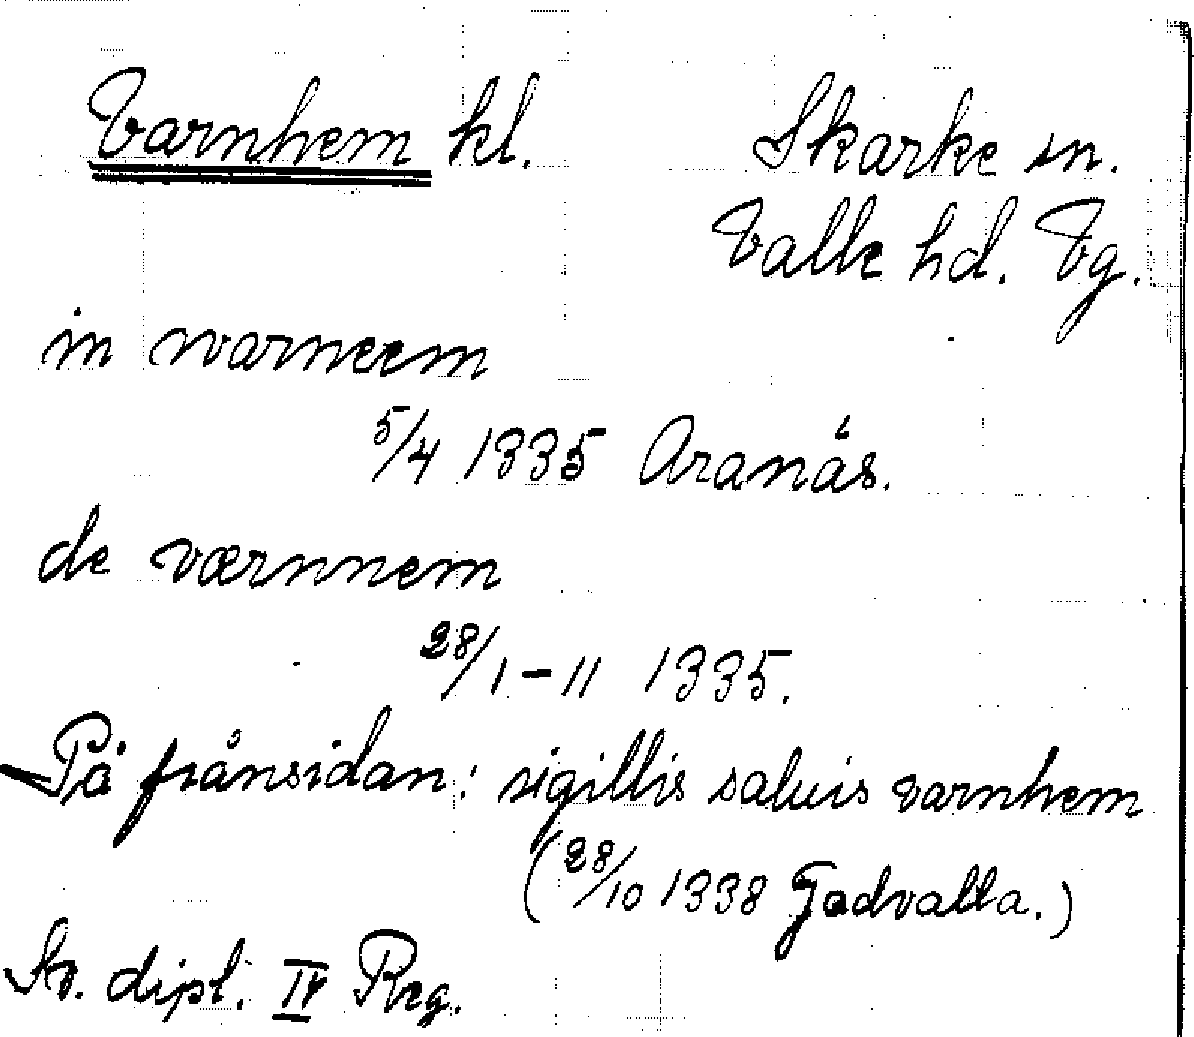 Varnhem kl. Skarke sn.
Valle hd. Vg.
in warneem
5/4 1335 Aranäs.
deværnnem
28/1-11 1335.
På frånsidan: sigillis saluis varnhem
(28/10 1338 Gadvalla.)
Sv. dipl. IV Reg.